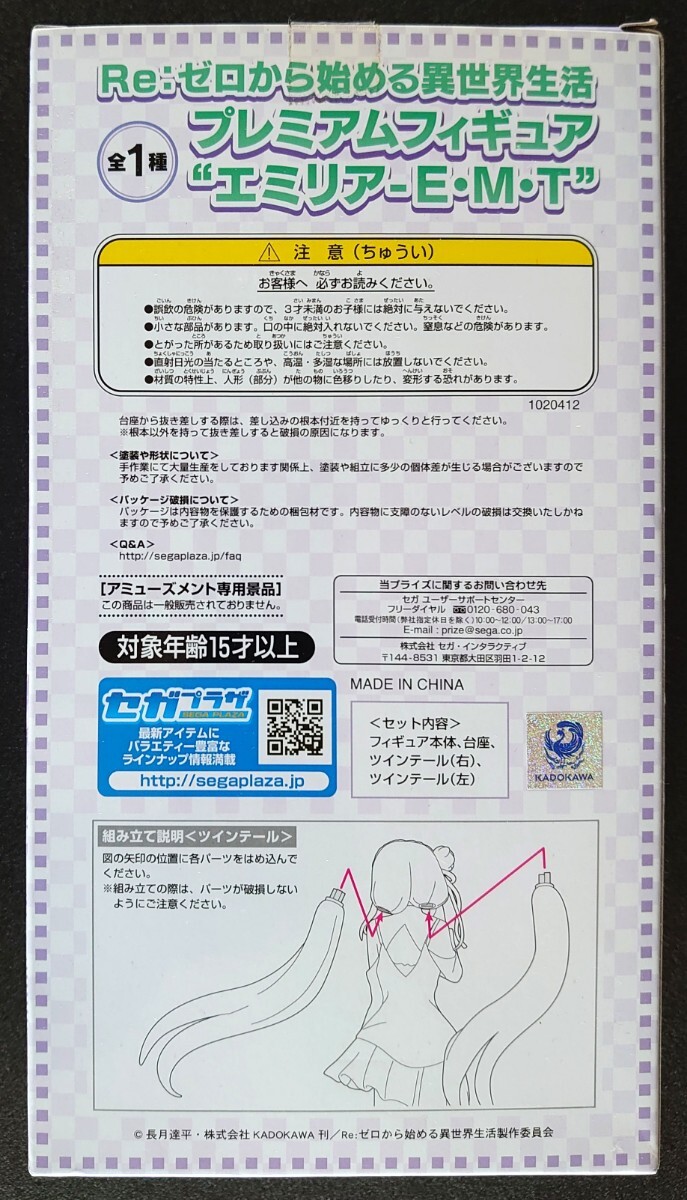 Re:ゼロから始める異世界生活
全1種
プレミアムフィギュア
“エミリア-E・M・T”
⚠ 注 意 (ちゅうい)
お客様へ 必ずお読みください。
●誤飲の危険がありますので、3才未満のお子様には絶対に与えないでください。
●小さな部品があります。口の中に絶対入れないでください。窒息などの危険があります。
●とがった所があるため取り扱いにはご注意ください。
●直射日光の当たるところや、高温・多湿な場所には放置しないでください。
●材質の特性上、人形(部分)が他の物に色移りしたり、変形する恐れがあります。
1020412
台座から抜き差しする際は、差し込みの根本付近を持ってゆっくりと行ってください。
※根本以外を持って抜き差しすると破損の原因になります。
<塗装や形状について>
手作業にて大量生産をしております関係上、塗装や組立に多少の個体差が生じる場合がございますので
予めご了承ください。
<パッケージ破損について>
パッケージは内容物を保護するための梱包材です。内容物に支障のないレベルの破損は交換いたしかね
ますので予めご了承ください。
<Q&A>
http://segaplaza.jp/faq
[アミューズメント専用景品]
この商品は一般販売されておりません。
対象年齢15才以上
当プライズに関するお問い合わせ先
セガ ユーザーサポートセンター
フリーダイヤル 0120-680-043
電話受付時間(弊社指定休日を除く)10:00~12:00/13:00~17:00
E-mail : prize@sega.co.jp
株式会社 セガ・インタラクティブ
〒144-8531 東京都大田区羽田1-2-12
セガプラザ
SEGA PLAZA
最新アイテムに
バラエティー豊富な
ラインナップ情報満載
http://segaplaza.jp
MADE IN CHINA
<セット内容>
フィギュア本体、台座、
ツインテール(右)、
ツインテール(左)
KADOKAWA
組み立て説明<ツインテール>
図の矢印の位置に各パーツをはめ込んで
ください。
※組み立ての際は、パーツが破損しない
ようにご注意ください。
© 長月達平・株式会社KADOKAWA 刊/Re:ゼロから始める異世界生活製作委員会